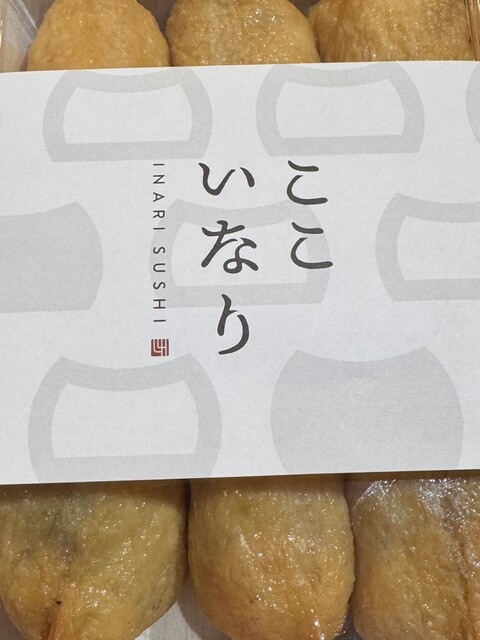 ここ
いなり
INARI SUSHI